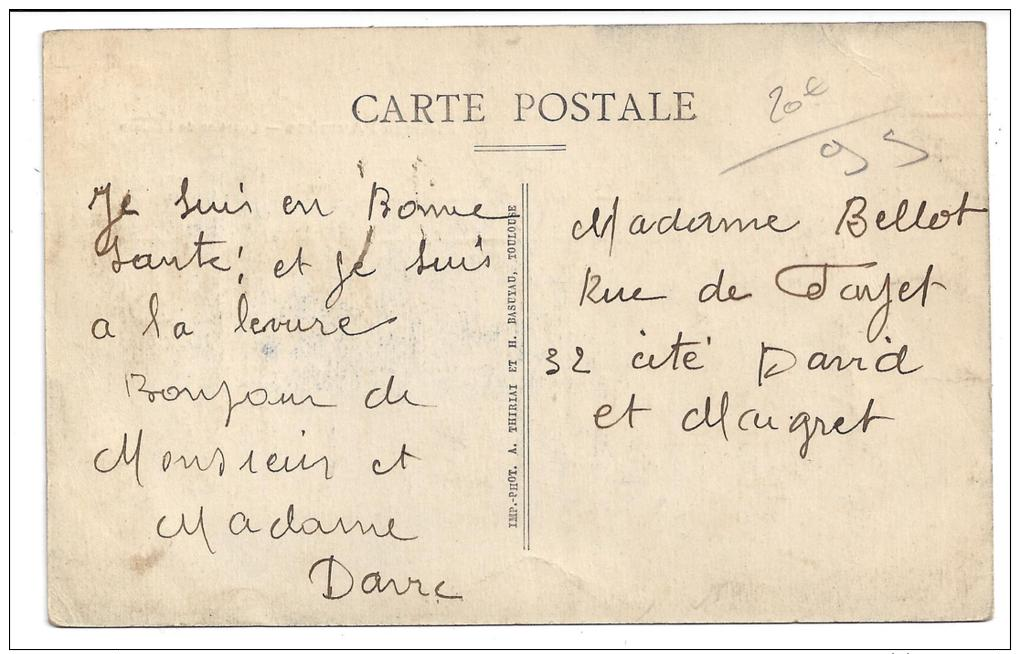 CARTE POSTALE
20e
95
Je suis en Bonne
Santé, et je suis
a la levure
Bonjour de
Monsieur et
Madame
Davre
IMP.-PHOT. A. THIRIAT ET H. BASUYAU, TOULOUSE
Madame Bellot
Rue de
32 cité David
et Maigret